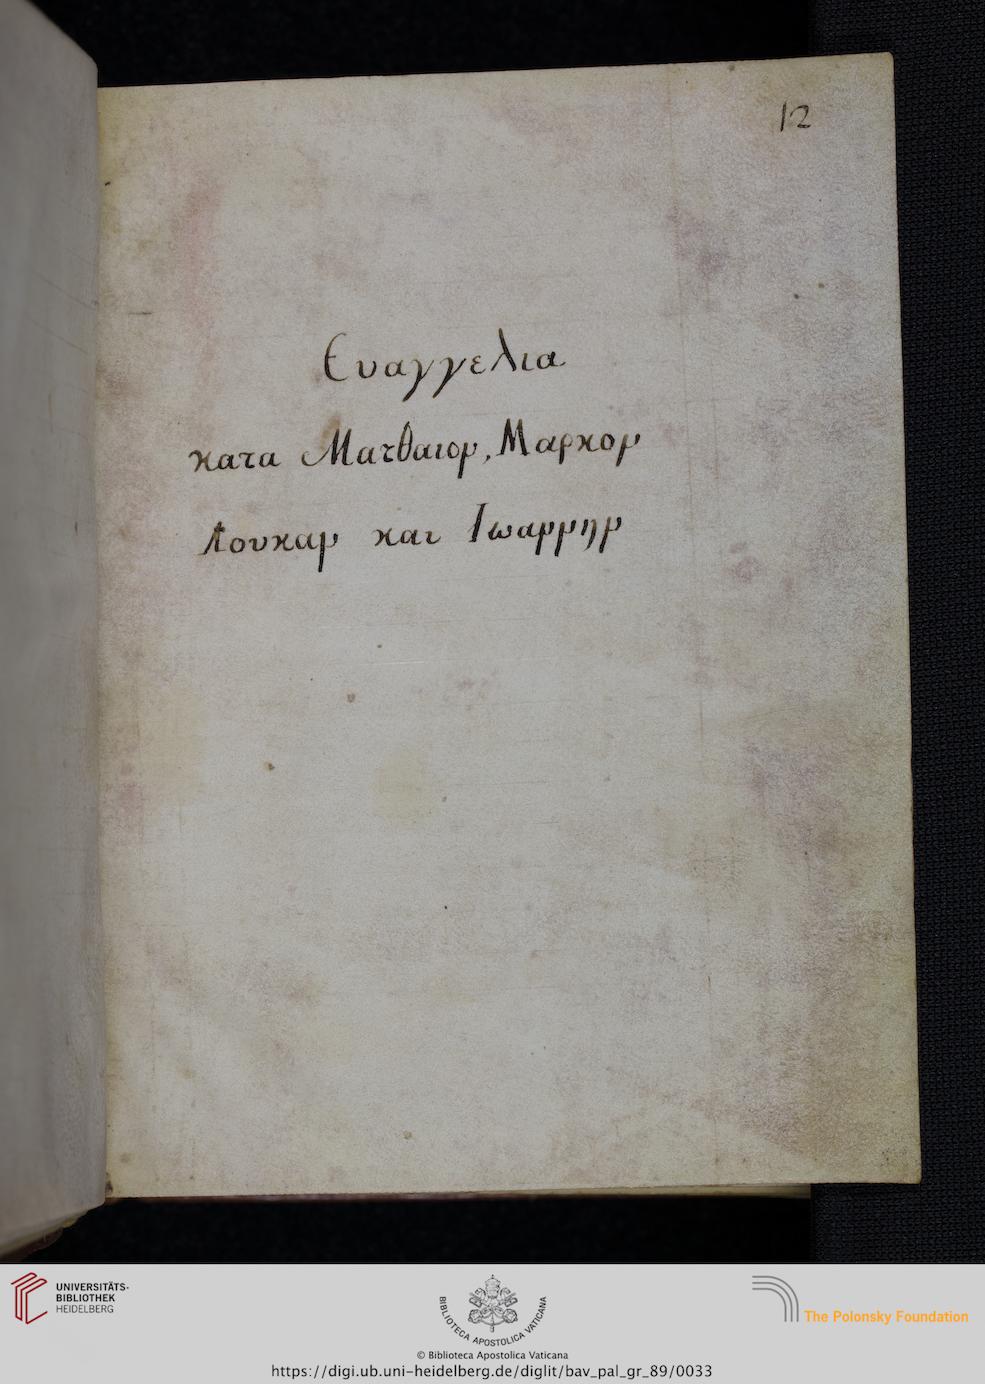 12
Ευαγγελια
κατα Ματθαιον, Μαρκον
Λουκαν και Ιωαννην
UNIVERSITÄTS-
BIBLIOTHEK
HEIDELBERG
BIBLIOTECA APOSTOLICA VATICANA
The Polonsky Foundation
© Biblioteca Apostolica Vaticana
https://digi.ub.uni-heidelberg.de/diglit/bav_pal_gr_89/0033